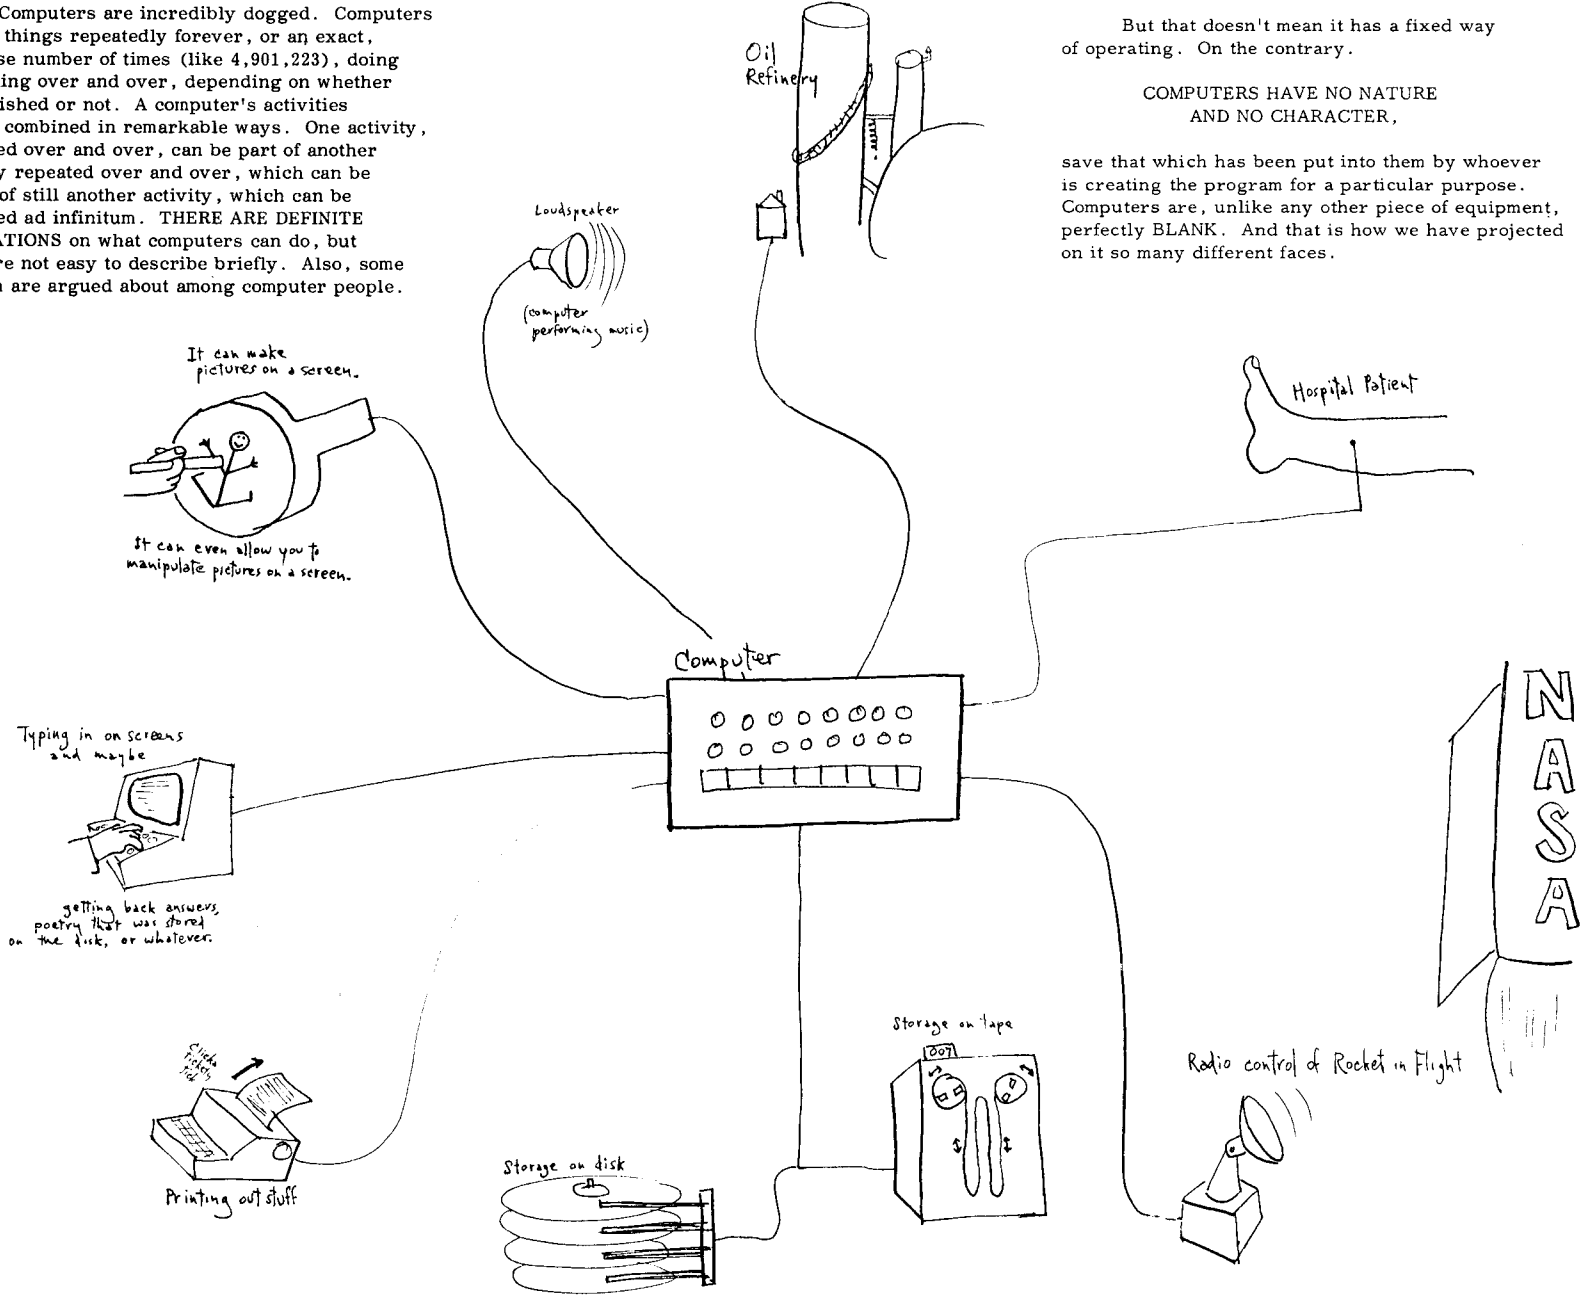 Computers are incredibly dogged. Computers
things repeatedly forever, or an exact,
se number of times (like 4,901,223), doing
ing over and over, depending on whether
ished or not. A computer's activities
combined in remarkable ways. One activity,
ed over and over, can be part of another
y repeated over and over, which can be
of still another activity, which can be
ed ad infinitum. THERE ARE DEFINITE
ATIONS on what computers can do, but
re not easy to describe briefly. Also, some
are argued about among computer people.
But that doesn't mean it has a fixed way
of operating. On the contrary.
COMPUTERS HAVE NO NATURE
AND NO CHARACTER,
save that which has been put into them by whoever
is creating the program for a particular purpose.
Computers are, unlike any other piece of equipment,
perfectly BLANK. And that is how we have projected
on it so many different faces.
Oil
Refinery
Loudspeaker
(computer
performing music)
It can make
pictures on a screen.
It can even allow you to
manipulate pictures on a screen.
Hospital Patient
Computer
Typing in on screens
and maybe
getting back answers,
poetry that was stored
on the disk, or whatever.
NASA
Clicka
tickety
tick
Printing out stuff
Storage on disk
Storage on tape
007
Radio control of Rocket in Flight